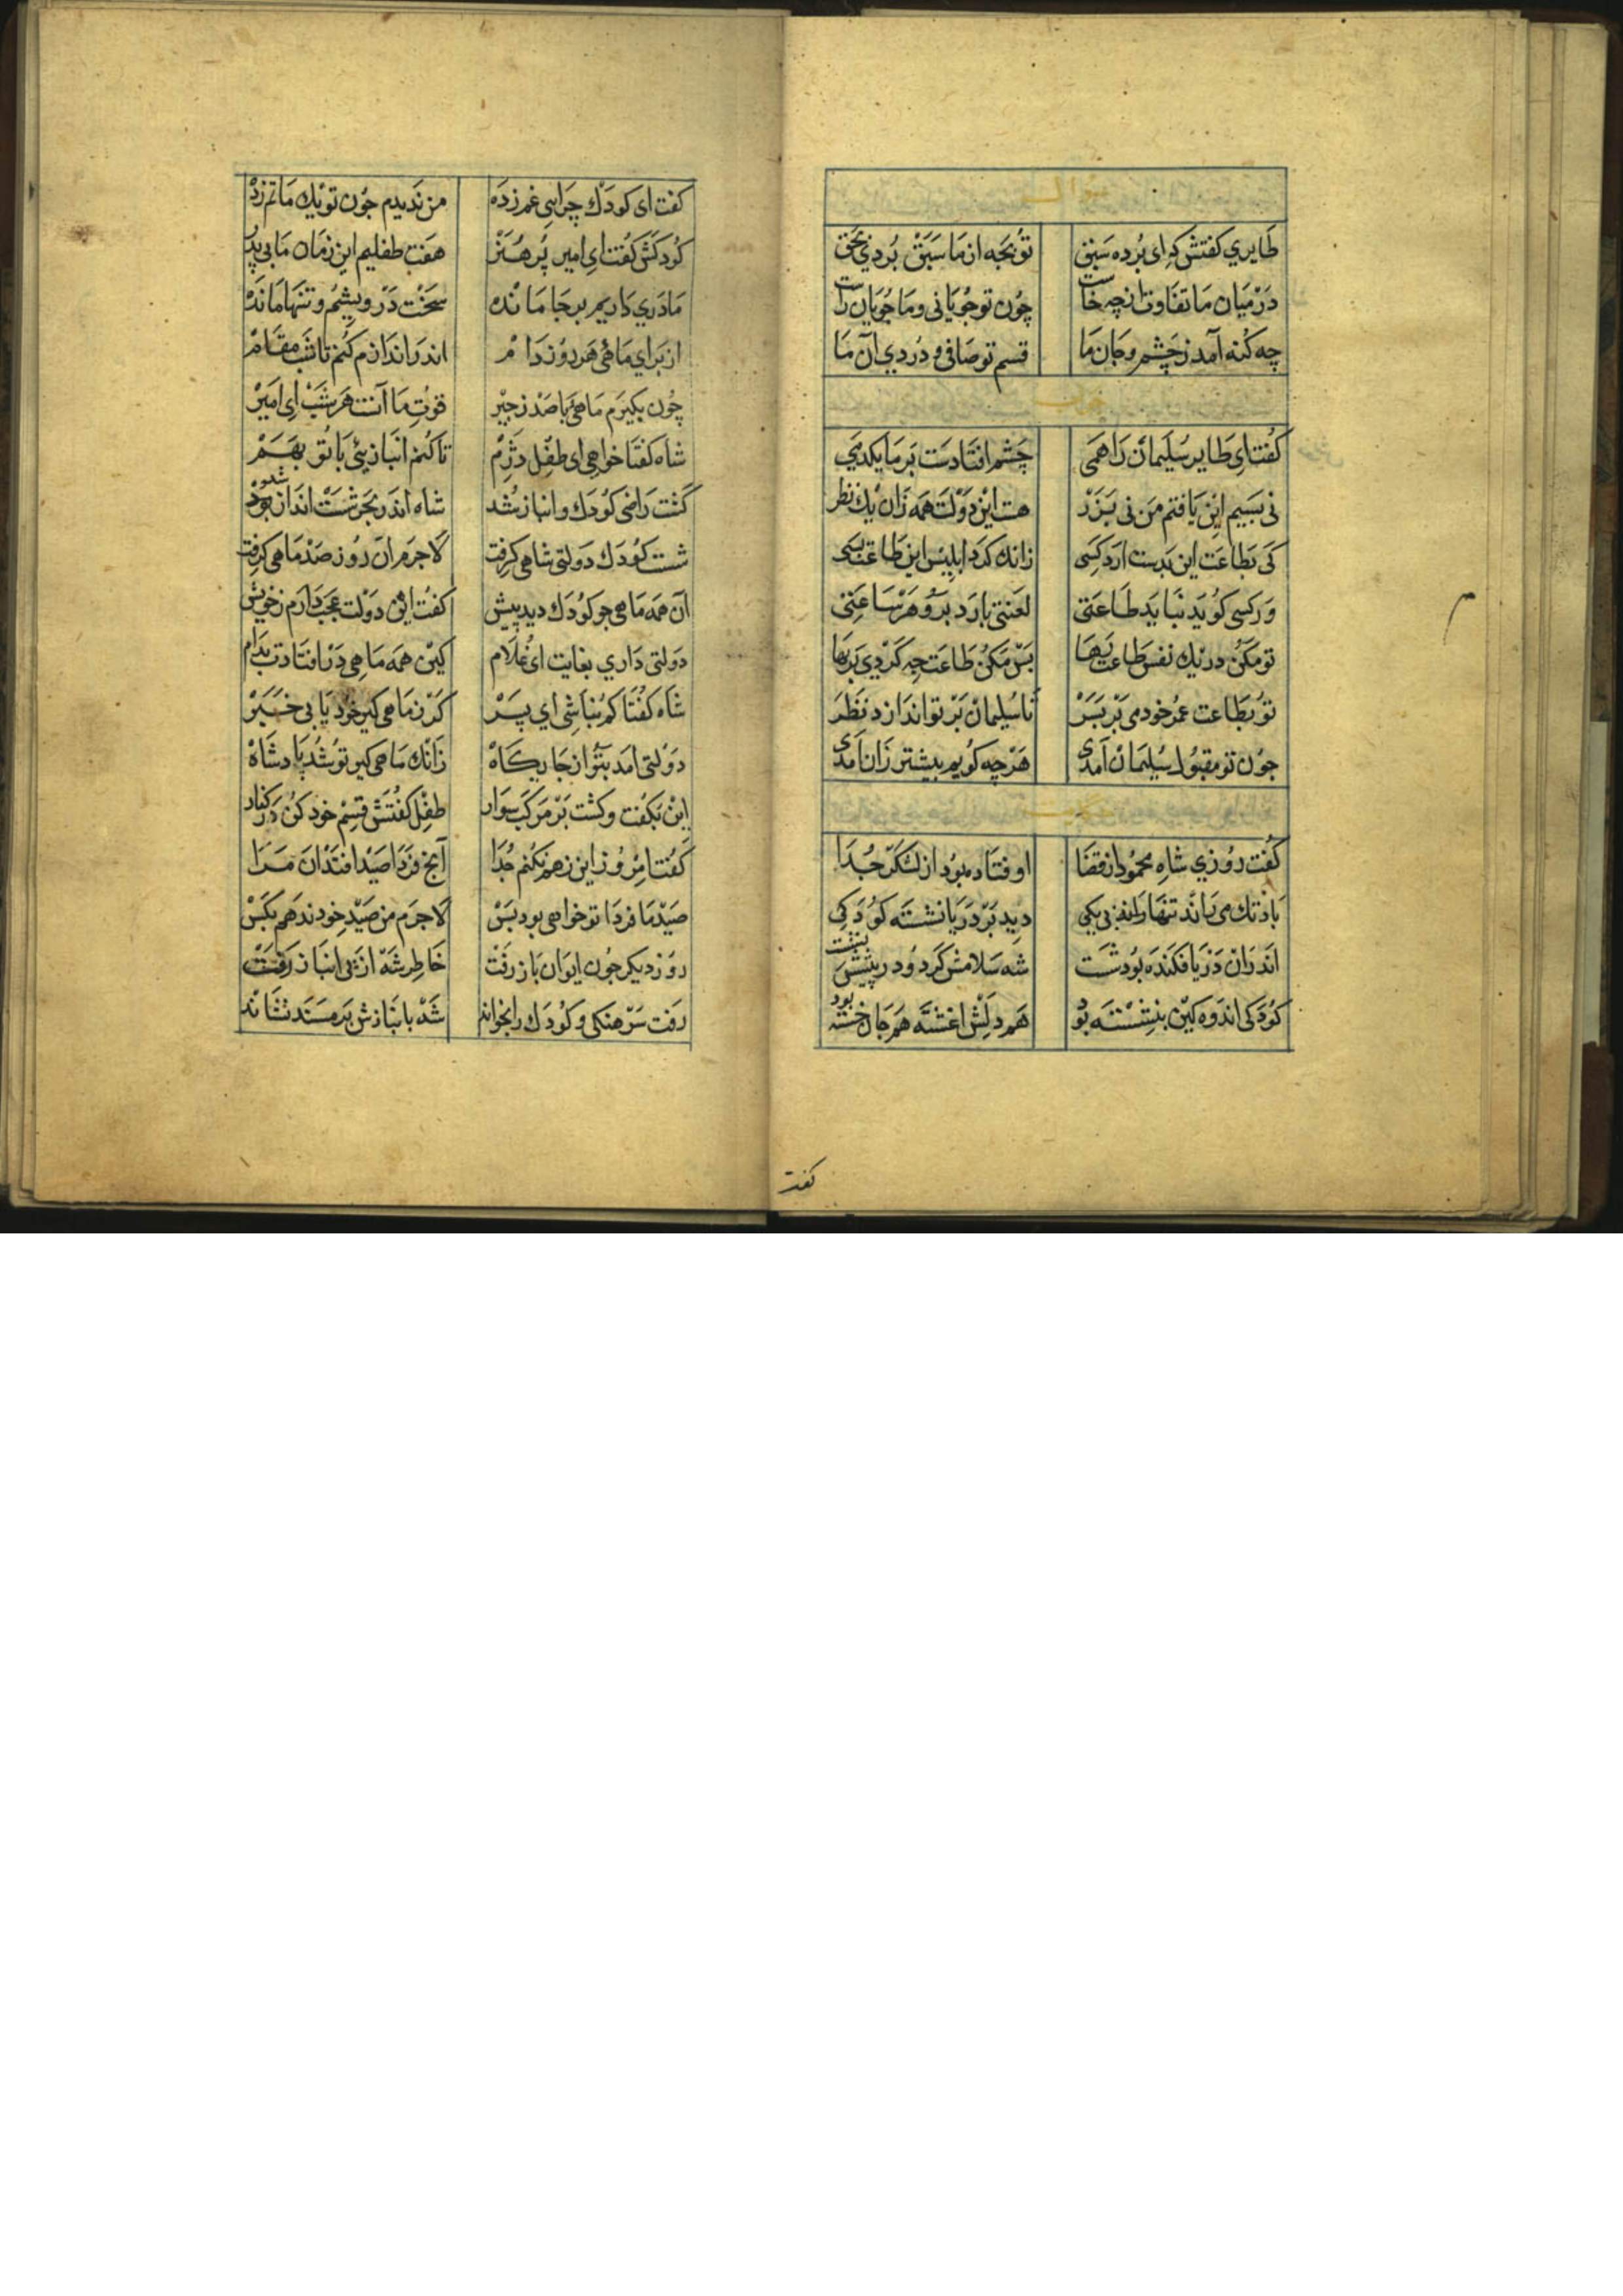 سوال
طایری کفتش که ای برده سبق تو بچه از ما سبق بردی بحق
در میان ما تفاوت از چه خاست چون تو جویانی و ما جویان راست
چه کنه آمد ز جشم و جان ما قسم تو صافی و دردی آن ما
جواب
کفت ای طایر سلیمان را همی چشم افتادست بر ما یکدمی
نی بسیم این یافتم من نی بزر هست این دولت همه زان یک نظر
کی بطاعت این بدست ارد کسی زانک کرد ابلیس این طاعت بسی
ور کسی کوید نباید طاعتی لعنتی بارد برو هر ساعتی
تو مکن در یک نفس طاعت رها بس مکن طاعت چه کردی بر بها
تو بطاعت عمر خود می بر بسر تا سلیمان بر تو اندازد نظر
جون تو مقبول سلیمان آمدی هرچه کویم بیشتر زان آمدی
حکایت
کفت روزی شاه محمود از قضا اوفتاده بود از لشکر جدا
باد تک می راند تنها بی یکی دید بر دریا نشسته کودکی
اندران دریا فکنده بود شست شه سلامش کرد و در پیشش نشست
کودکی اندوه کین بنشسته بود هم دلش اغشته هم جان خسته بود
کفت
کفت ای کودک چرایی غم زده من ندیدم جون تو یک ماتم زده
کودکش کفت ای امیر پر هنر هفت طفلیم این زمان ما بی پدر
مادری داریم بر جا مانده سخت درویشیم و تنها مانده
از برای ماهئی هر روز دام اندر اندازم کنم تا شب مقام
چون بکیرم ماهئی با صد زحیر قوت ما آنست هر شب ای امیر
شاه کفتا خواهی ای طفل دژم تا کنم انبازیئی با تو بهم
کشت راضی کودک و انباز شد شاه اندر بحر شست انداز شد
شست کودک دولتی شاهی کرفت لاجرم آن روز صد ماهی کرفت
آن همه ماهی جو کودک دید پیش کفت این دولت عجب دارم ز خویش
دولتی داری بغایت ای غلام کین همه ماهی در افتادت بدام
شاه کفتا کم نباشی ای پسر کر ز ماهی کیر خود یابی خبر
دولتی آمد بتو از جایکاه زانک ماهی کیر تو شد پادشاه
این بکفت و کشت بر مرکب سوار طفل کفتش قسم خود کن در کنار
کفت امروز این نهم نکنم جدا آنچ فردا صید افتد آن مرا
صید ما فردا تو خواهی بود بس لاجرم من صید خود ندهم بکس
روز دیکر جون ایوان باز رفت خاطر شه از پی انباز رفت
رفت سرهنکی و کودک را بخواند شه بانبازیش بر مسند نشاند